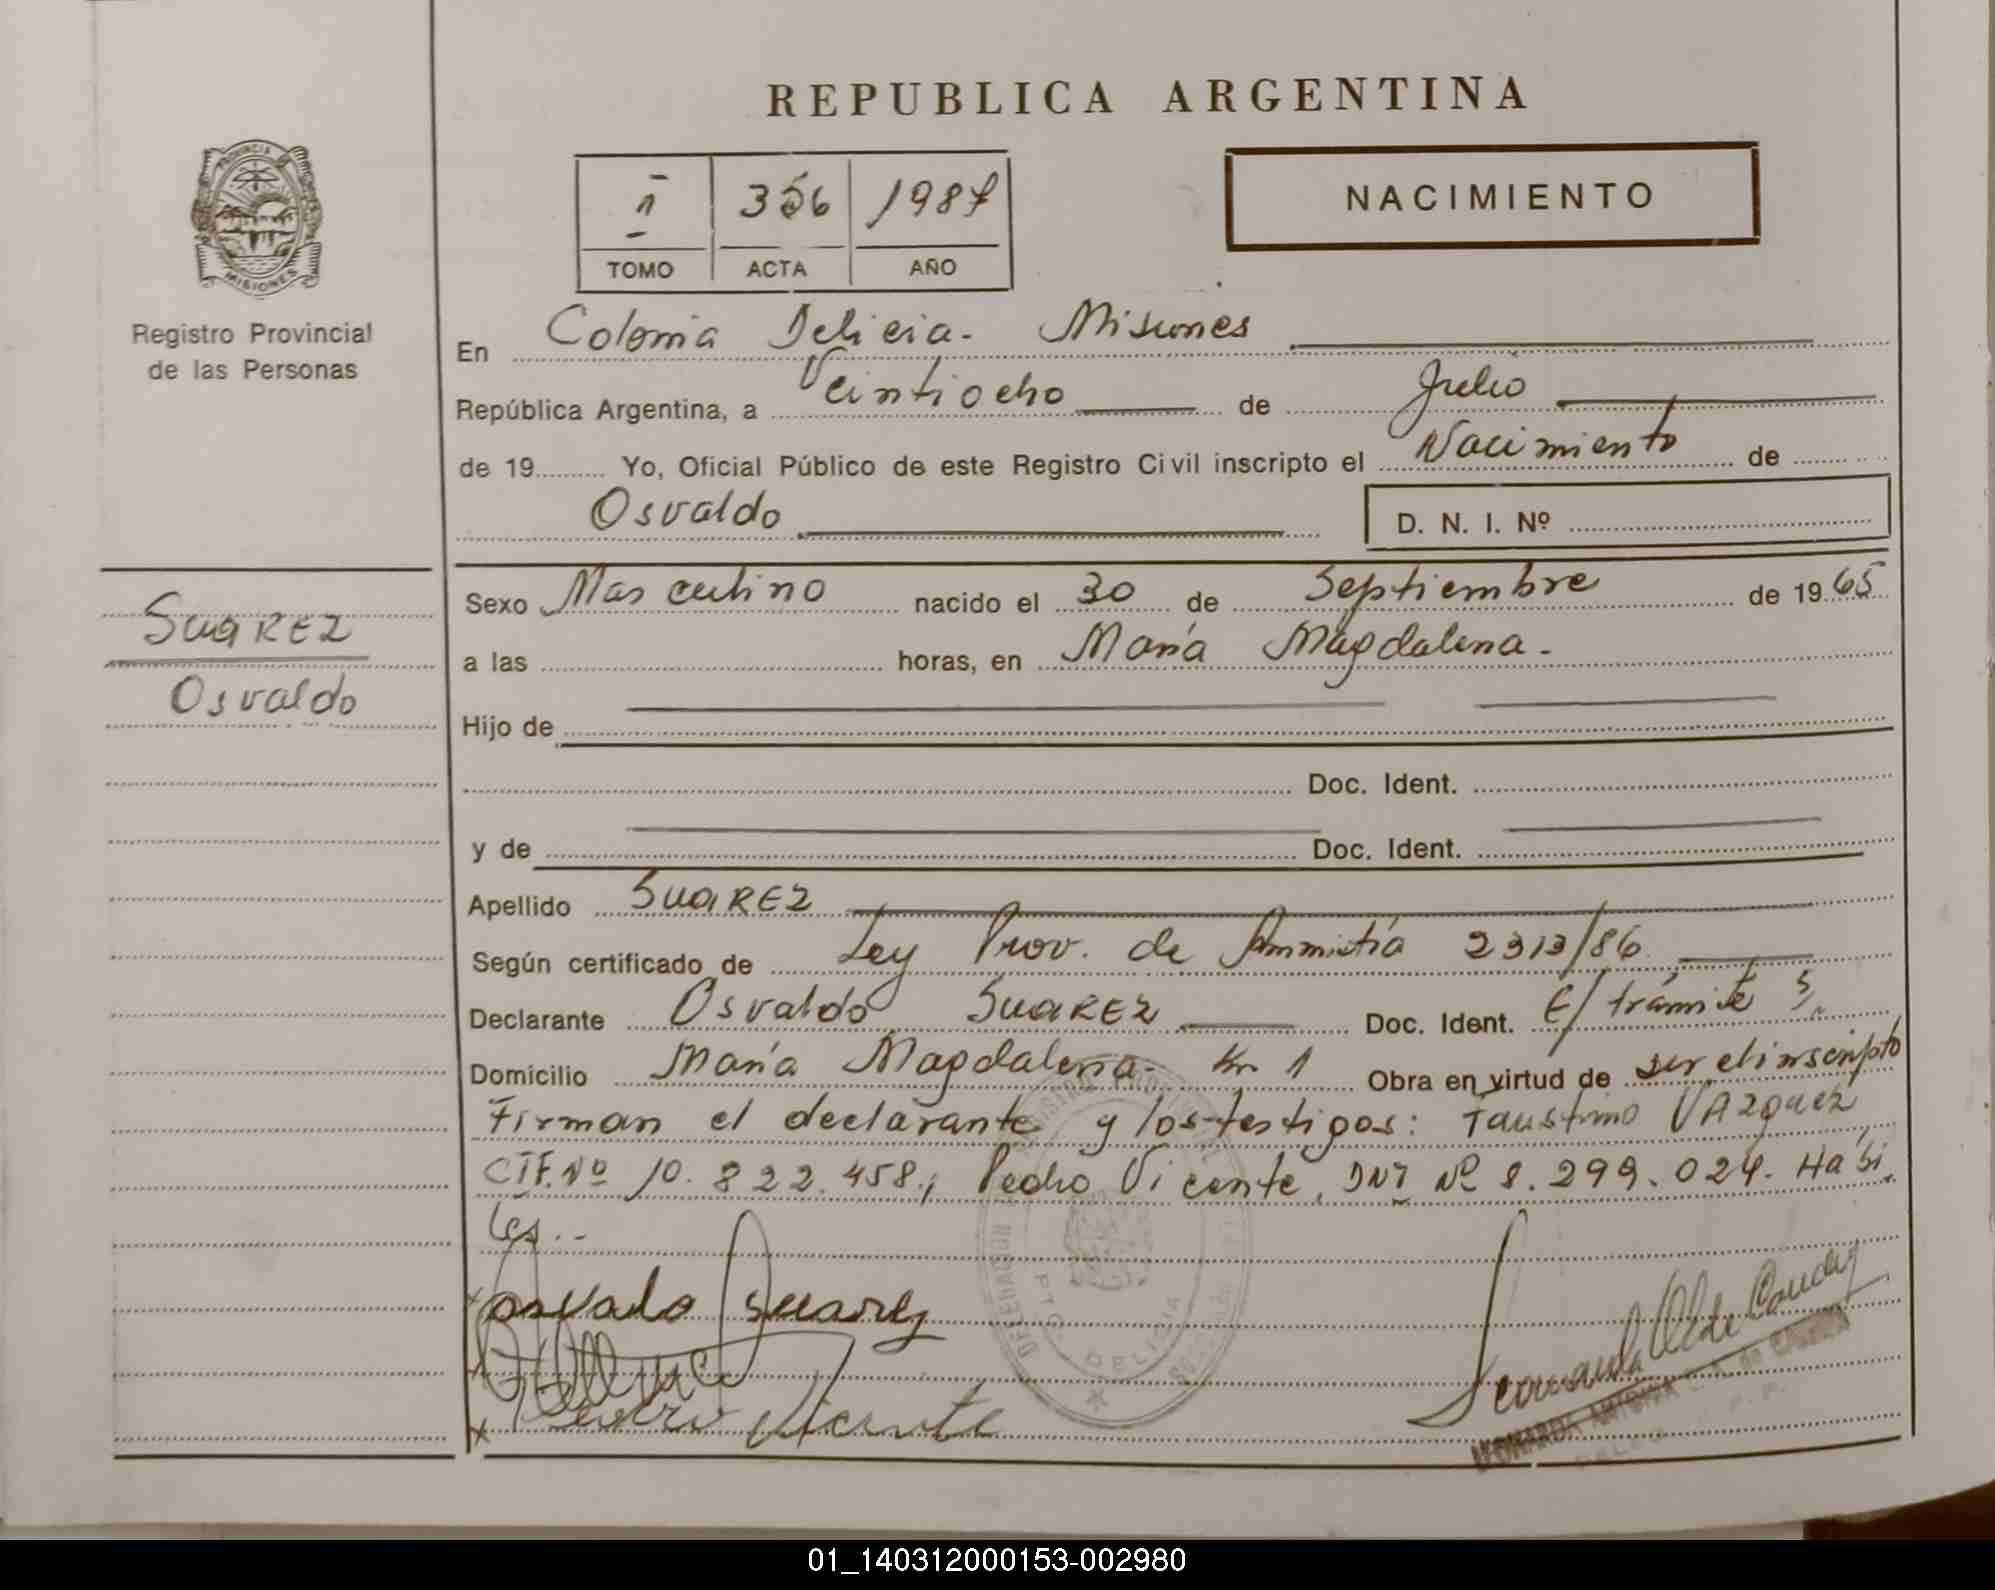 REPUBLICA ARGENTINA
PROVINCIA DE MISIONES
Registro Provincial
de las Personas
1 356 1987
TOMO ACTA AÑO
NACIMIENTO
En Colonia Delicia - Misiones
República Argentina, a Veintiocho de Julio
de 19 Yo, Oficial Público de este Registro Civil inscripto el Nacimiento de
Osvaldo D. N. I. Nº
SUAREZ
Osvaldo
Sexo Masculino nacido el 30 de Septiembre de 1965
a las horas, en María Magdalena.
Hijo de
Doc. Ident.
y de Doc. Ident.
Apellido SUAREZ
Según certificado de Ley Prov. de Amnistía 2313/86
Declarante Osvaldo SUAREZ Doc. Ident. E/trámite
Domicilio María Magdalena - Km 1 Obra en virtud de ser el inscripto
Firman el declarante y los testigos: Faustino VAZquez
Nº 10.822.458., Pedro Vicente, DNI Nº 8.299.024. Hábi
les.-
osvaldo suarez
Pedro Vicente
DELICIA
LEONARDA
01_140312000153-002980